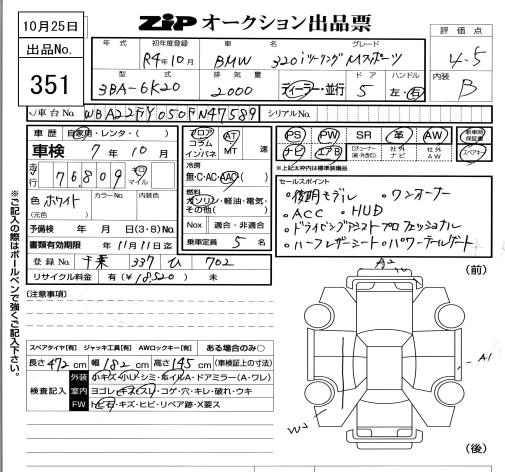 10月25日
出品No.
351
ZIP オークション出品票
評価点
4.5
内装
B
年式 初年度登録 車名 グレード
R4年10月 BMW 320iツーリング Mスポーツ
型式 排気量 ドア ハンドル
3BA-6K20 2000 ディーラー・並行 5 左・右
車台No. WBA22FY050FN47589 シリアルNo.
車歴 自家用・レンタ・( )
車検 7年10月
走行 76,809 キロ マイル
色 ホワイト カラーNo. 内装色
(元色)
予備検 年 月 日(3・8)No.
書類有効期限 11月11日迄
登録No. 千葉 337 ひ 702
リサイクル料金 有(¥18,520) 未
フロア
コラム
インパネ
AT
MT 速
冷房
無・C・AC・AAC
燃料
ガソリン・軽油・電気・
その他( )
Nox 適合・非適合
乗車定員 5 名
PS PW SR 革 AW 新車時保証書
ナビ エアB 社外ナビ 社外AW スペアキー
※上記太枠内は標準装備品
セールスポイント
・後期モデル ・ワンオーナー
・ACC ・HUD
・ドライビングアシストプロフェッショナル
・ハーフレザーシート・パワーテールゲート
※ご記入の際はボールペンで強くご記入下さい。
[注意事項]
スペアタイヤ[有] ジャッキ工具[有] AWロックキー[有] ある場合のみ○
長さ 472 cm 幅 182 cm 高さ 145 cm (車検証上の寸法)
検査記入
外装 小キズ・小U・シミ・ホイルA・ドアミラー(A・ワレ)
室内 ヨゴレ・キズ(スリ)・コゲ・穴・キレ・破れ・ウキ
FW トビ石・キズ・ヒビ・リペア跡・X要ス
A2
(前)
A1
W2
(後)